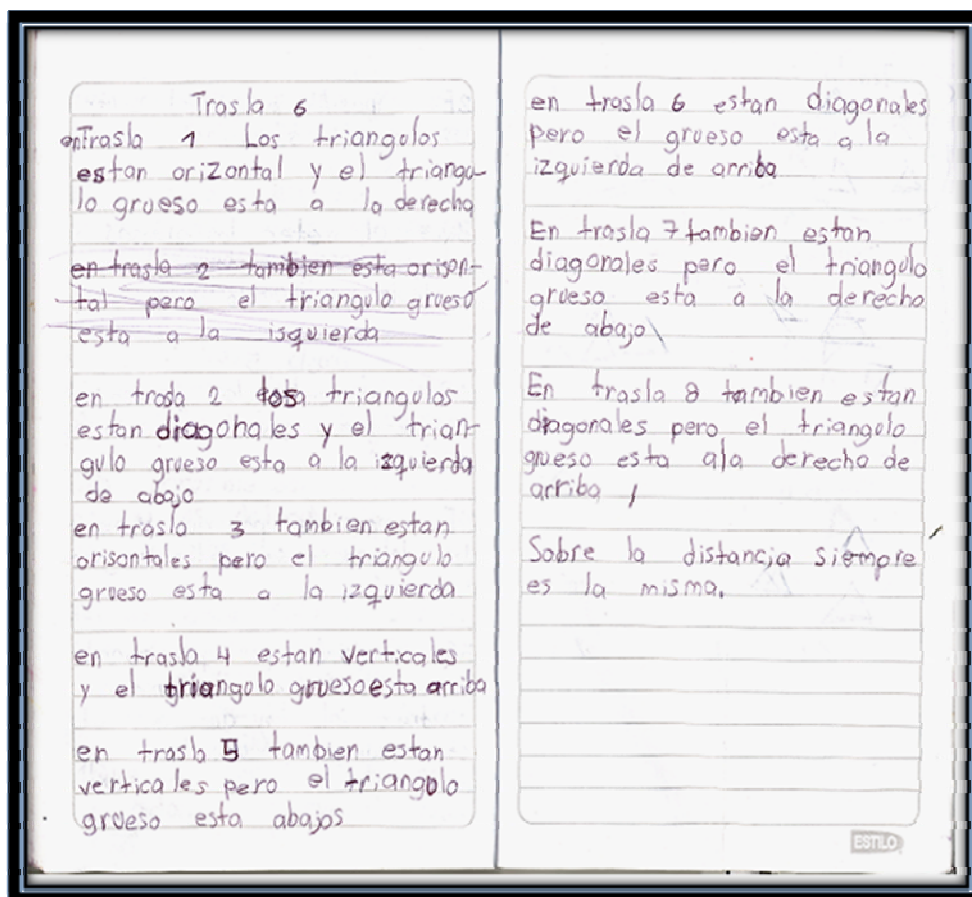 Trasla 6
en Trasla 1 Los triangulos
estan orizontal y el triangu-
lo grueso esta a la derecha
en trasla 2 tambien esta orison-
tal pero el triangulo grueso
esta a la isquierda
en trasla 2 los triangulos
estan diagonales y el trian-
gulo grueso esta a la izquierda
de abajo
en trasla 3 tambien estan
orisontales pero el triangulo
grueso esta a la izquierda
en trasla 4 estan verticales
y el triangulo grueso esta arriba
en trasla 5 tambien estan
verticales pero el triangulo
grueso esta abajos
en trasla 6 estan diagonales
pero el grueso esta a la
izquierda de arriba
En trasla 7 tambien estan
diagonales pero el triangulo
grueso esta a la derecho
de abajo
En trasla 8 tambien estan
diagonales pero el triangulo
grueso esta ala derecho de
arriba
Sobre la distancia siempre
es la misma.
ESTILO